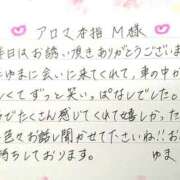 アロマ本指 M様
昨日はお誘い頂きありがとうございま
にゆまに会いに来てくれて、車の中が
しくてずっと笑っぱなしでした。
びたくさん感じてくれて嬉しかった
色々お話し聞かせて下さいね!!お
待ちしております。 ゆま